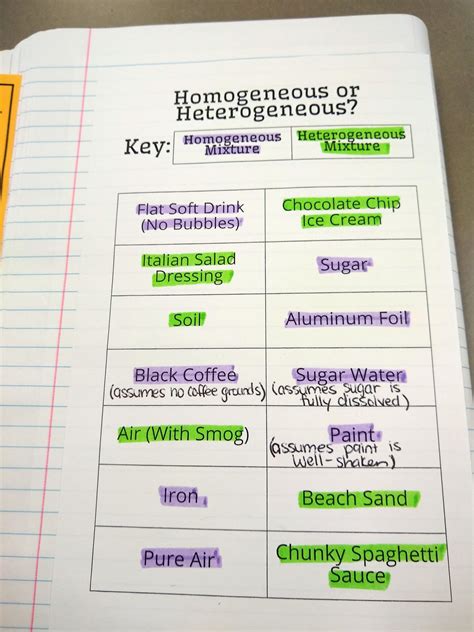 Homogeneous or
Heterogeneous?
Key:
Homogeneous
Mixture
Heterogeneous
Mixture
Flat Soft Drink
(No Bubbles)
Chocolate Chip
Ice Cream
Italian Salad
Dressing
Sugar
Soil
Aluminum Foil
Black Coffee
(assumes no coffee grounds)
Sugar Water
(assumes sugar is
fully dissolved)
Air (With Smog)
Paint
(assumes paint is
well-shaken)
Iron
Beach Sand
Pure Air
Chunky Spaghetti
Sauce